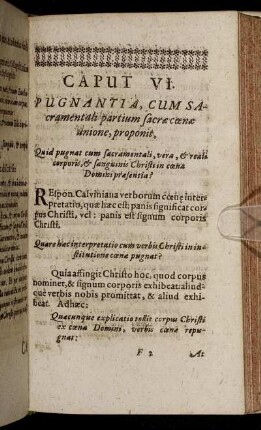 CAPUT VI.
PUGNANTIA, CUM SA-
cramentali partium sacræ cœnæ
unione, proponit,
Quid pugnat cum sacramentali, vera, & reali
corporis, & sanguinis Christi in cœna
Domini præsentia?
REspon. Calviniana verborum cœnæ inter-
pretatio, quæ hæc est: panis significat cor-
pus Christi, vel: panis est signum corporis
Christi.
Quare hæc interpretatio cum verbis Christi in in-
stitutione cœnæ pugnat?
Quia affingit Christo hoc, quod corpus
nominet, & signum corporis exhibeat: aliud-
que verbis nobis promittat, & aliud exhi-
beat. Adhæc:
Quæcunque explicatio tollit corpus Christi
ex cœna Domini, verbis cœnæ repu-
gnat:
F 2 At